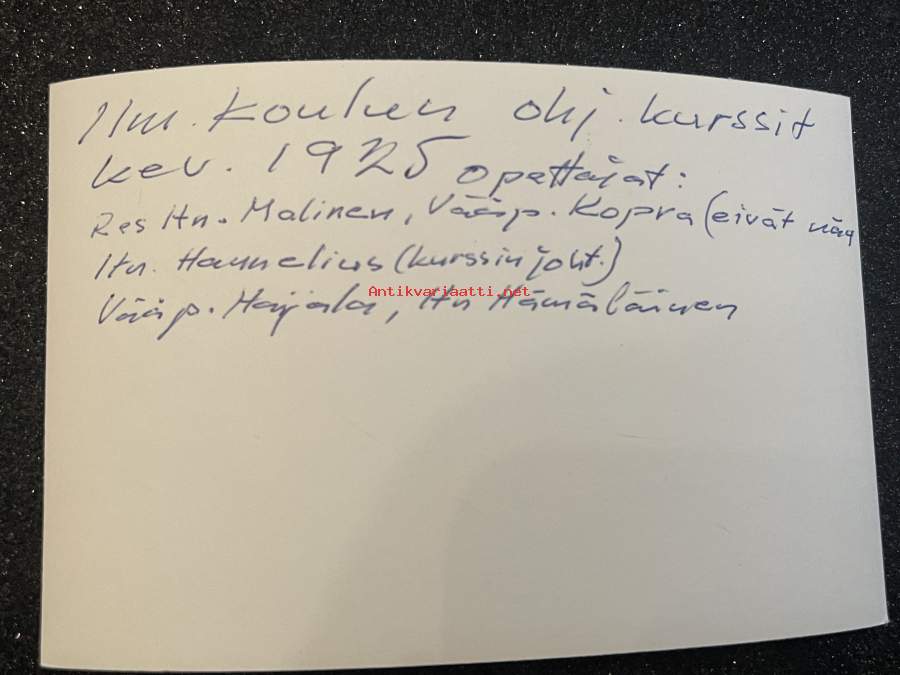 Ilm. Koulun ohj. kurssit
kev. 1925 opettajat:
Res ltn. Malinen, Vääp. Kopra (eivät näy
ltn. Hannelius (kurssin joht.)
Antikvariaatti.net
Vääp. Harjala, ltn Hämäläinen